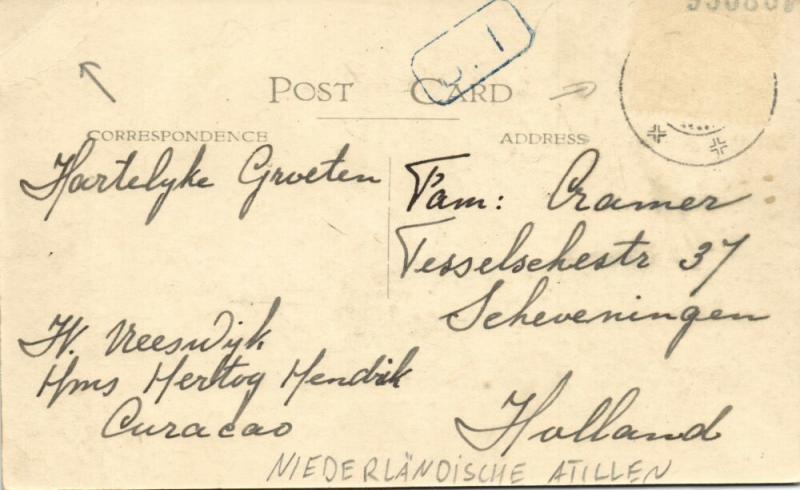 POST CARD
C. 1
CORRESPONDENCE
ADDRESS
Hartelyke Groeten
Fam: Cramer
Tesselschestr 37
Scheveningen
Holland
W. Vreeswijk
Hms Hertog Hendrik
Curacao
NIEDERLÄNDISCHE ATILLEN